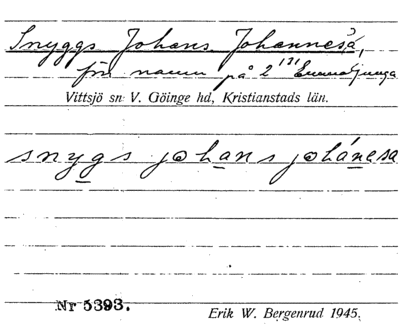 Snyggs Johans Johannesa,
förr namn på 2 131 Emmaljunga
Vittsjö sn: V. Göinge hd, Kristianstads län.
snygs johans johánesa
Nr 5393.
Erik W. Bergenrud 1945.